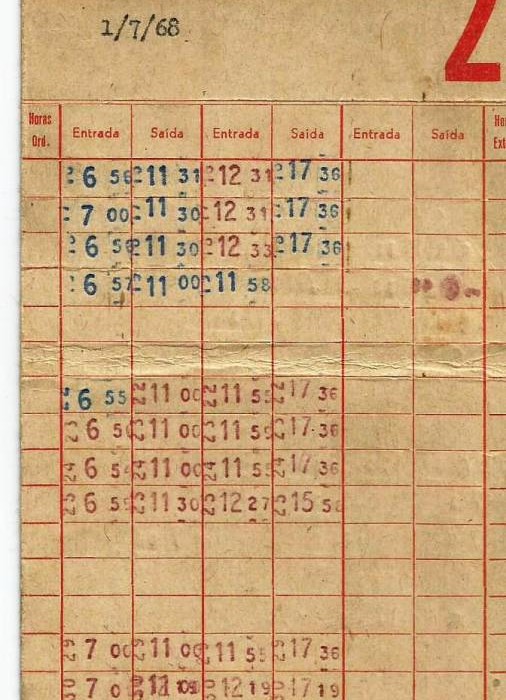 1/7/68
Horas Ord. Entrada Saída Entrada Saída Entrada Saída
6 56 11 31 12 31 17 36
7 00 11 30 12 31 17 36
6 56 11 30 12 33 17 36
6 57 11 00 11 58
6 55 11 00 11 55 17 36
6 50 11 00 11 59 17 36
6 54 11 00 11 55 17 36
6 59 11 30 12 27 15 58
7 00 11 00 11 55 17 36
7 12 19 17 19